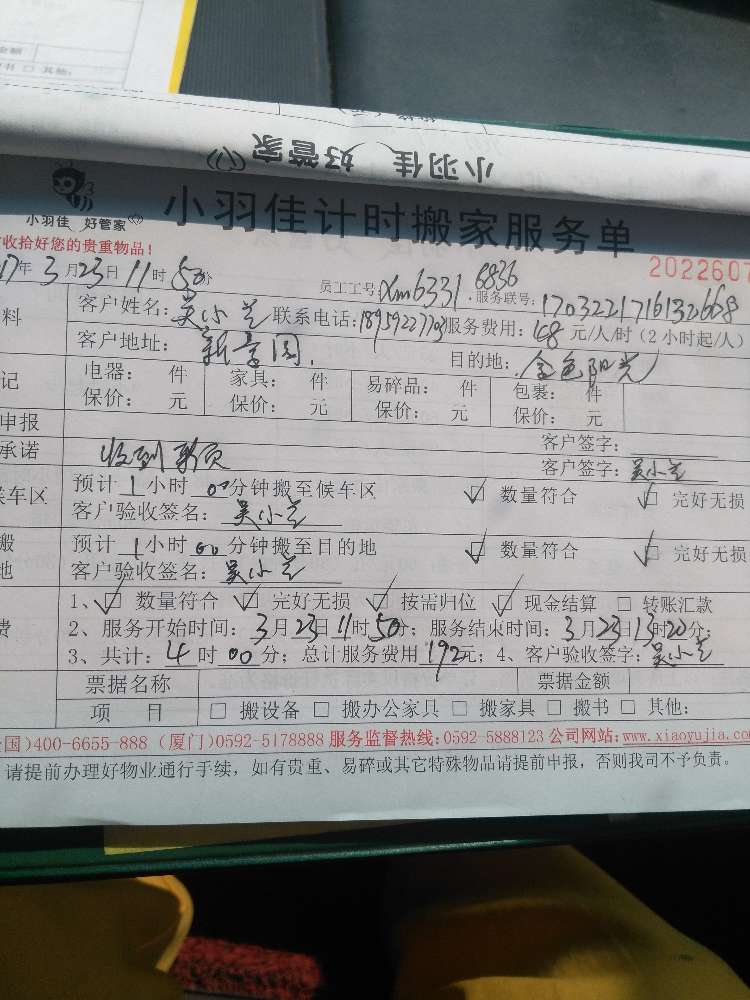 金额
书 □ 其他:
小羽佳 好管家
小羽佳 好管家
小羽佳计时搬家服务单
收拾好您的贵重物品！
2022607
17年3月23日11时50分
员工工号:xm6331 6836
服务联号:1703221716132668
料
客户姓名:吴小兰 联系电话:18959227703 服务费用:48元/人/时（2小时起/人）
客户地址: 新景园 目的地:金色阳光
记
电器: 件 家具: 件 易碎品: 件 包裹: 件
保价: 元 保价: 元 保价: 元 保价: 元
申报
客户签字:
承诺
收到 客户签字:吴小兰
候车区
预计1小时00分钟搬至候车区 ☑ 数量符合 ☑ 完好无损
客户验收签名:吴小兰
搬
地
预计1小时00分钟搬至目的地 ☑ 数量符合 ☑ 完好无损
客户验收签名:吴小兰
费
1、☑ 数量符合 ☑ 完好无损 ☑ 按需归位 ☑ 现金结算 □ 转账汇款
2、服务开始时间:3月23日11时50分；服务结束时间:3月23日13时20分；
3、共计:4时00分；总计服务费用192元；4、客户验收签字:吴小兰
票据名称 票据金额
项 目 □ 搬设备 □ 搬办公家具 □ 搬家具 □ 搬书 □ 其他:
国)400-6655-888 (厦门)0592-5178888 服务监督热线:0592-5888123 公司网站:www.xiaoyujia.com
请提前办理好物业通行手续，如有贵重、易碎或其它特殊物品请提前申报，否则我司不予负责。